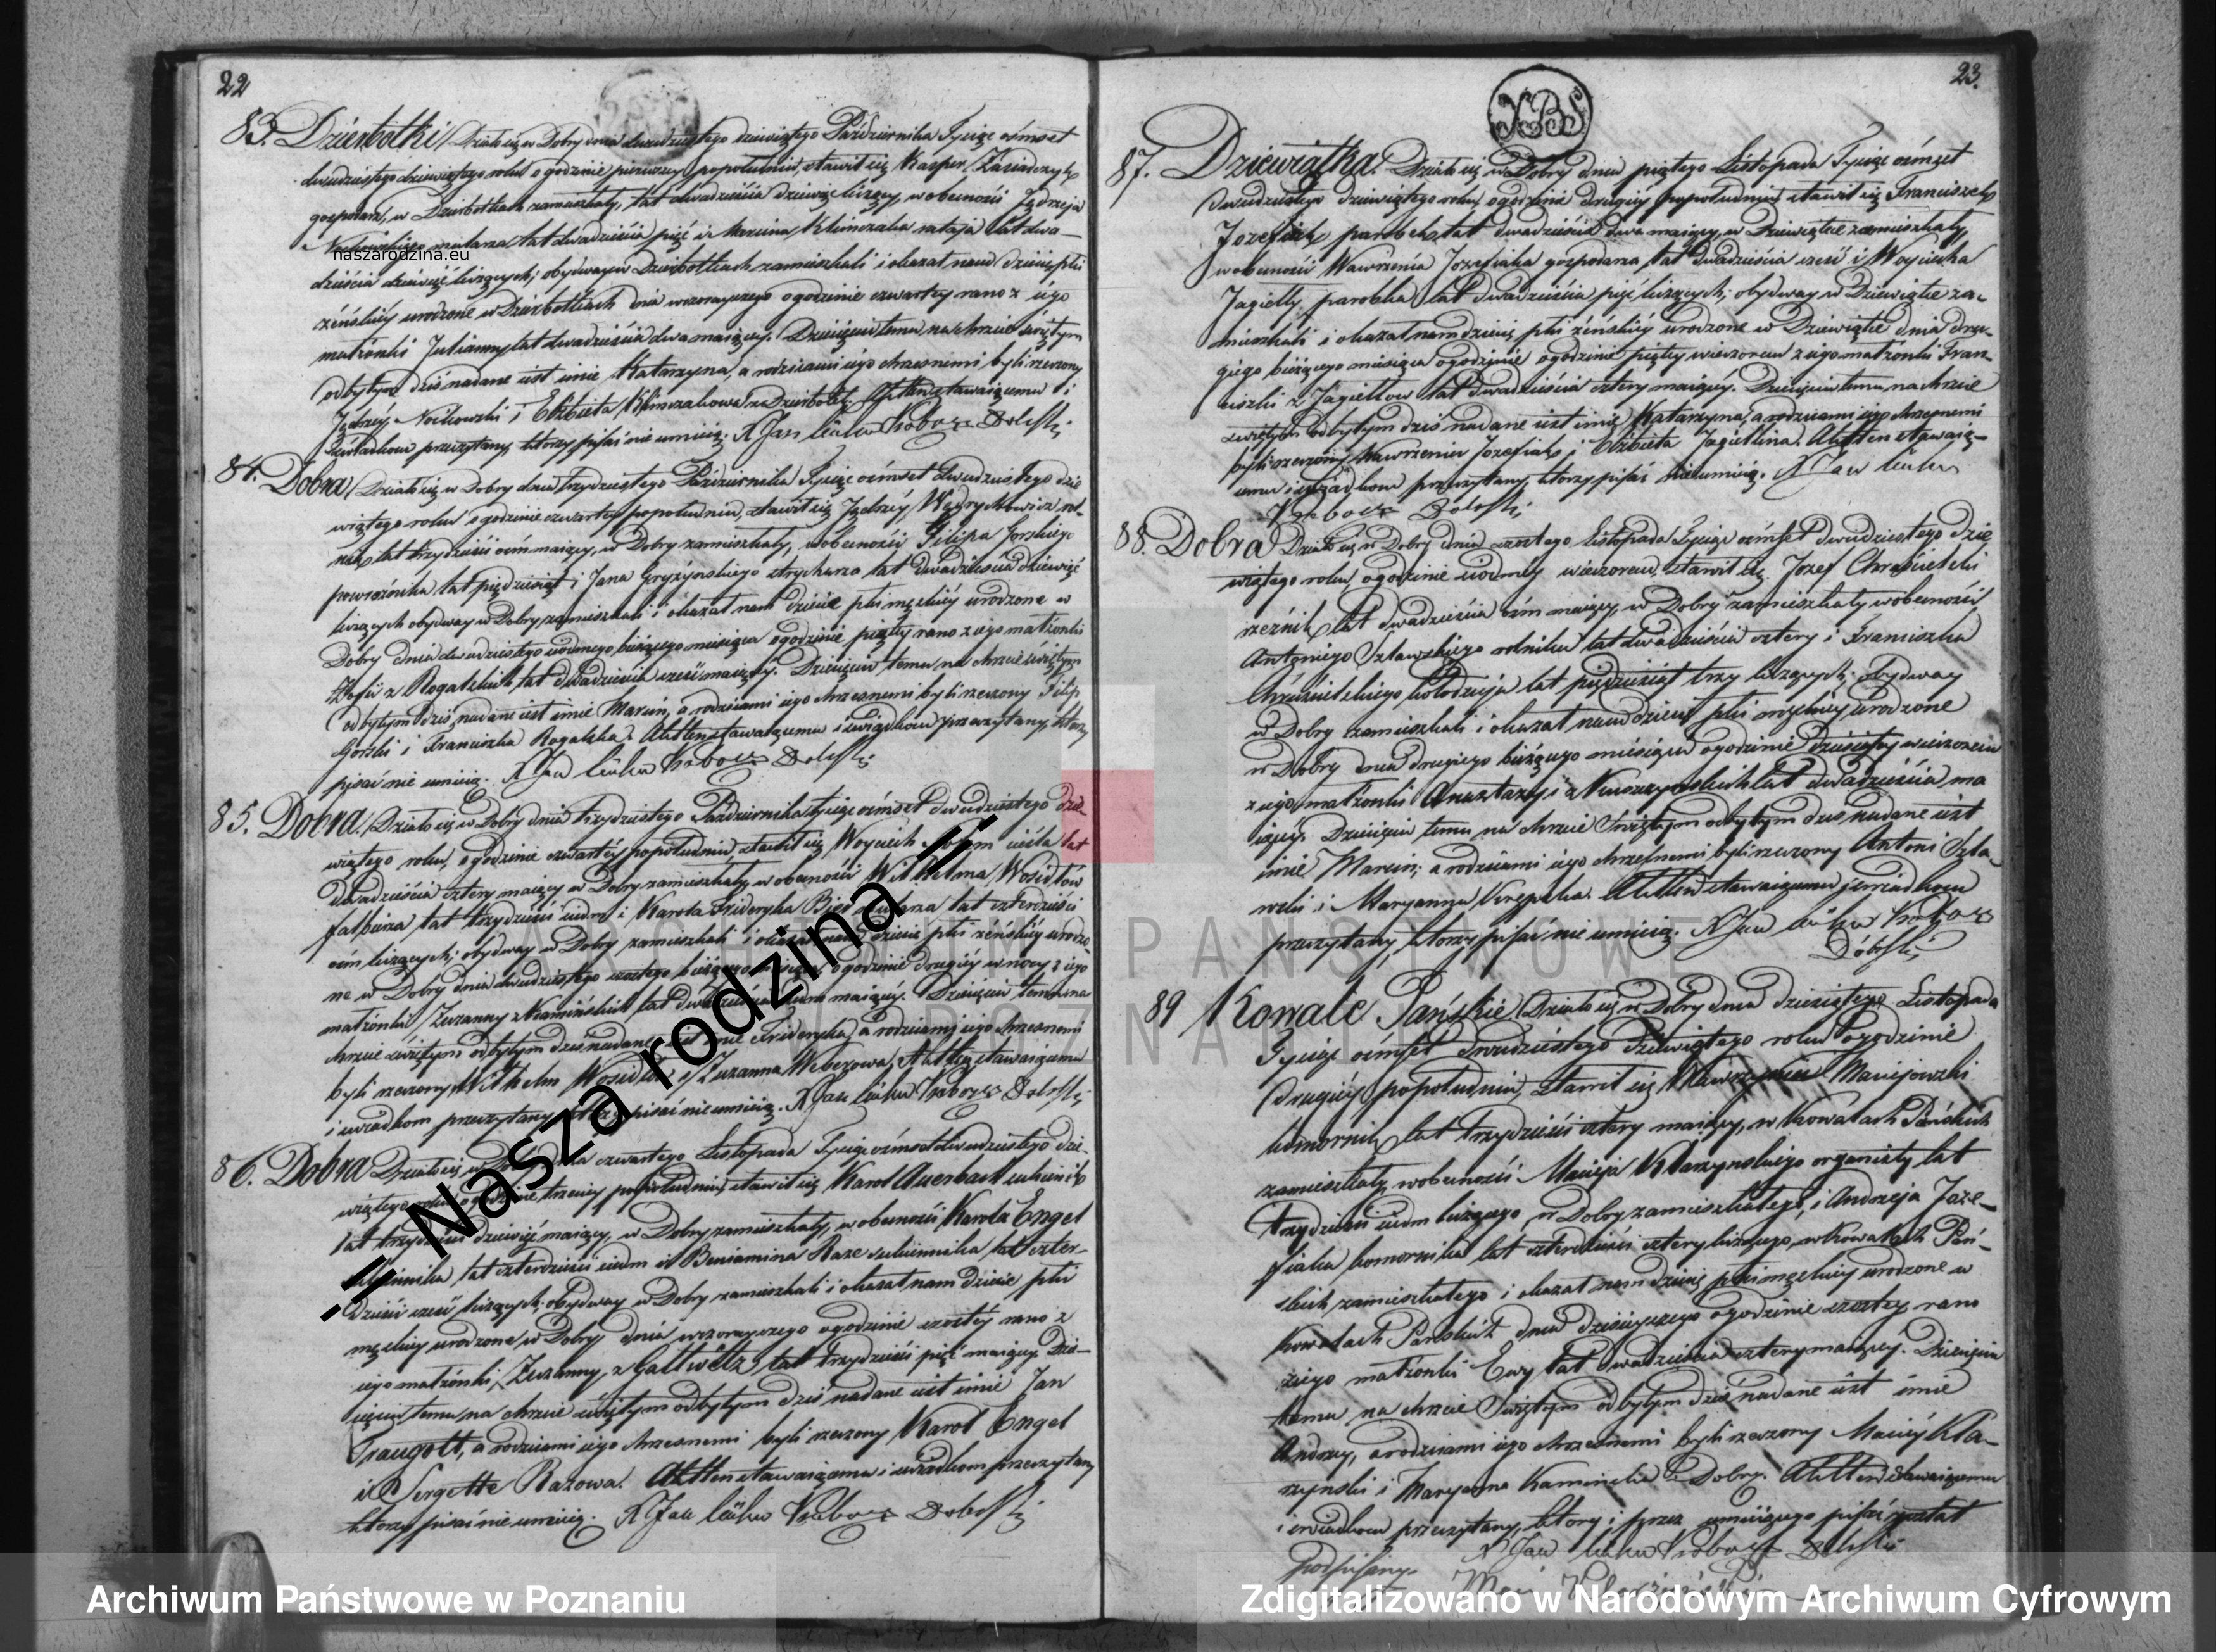 22
83. Dzierbotki Działo się w Dobry dnia dwudziestego dziewiątego Października Tysiąc ośmset
dwudziestego dziewiątego roku o godzinie pierwszy popołudniu, stawił się Kasper
gospodarz, w Dzierbotkach zamieszkały, lat dwadzieścia dziewięć liczący, w obecności Jędrzeja
Nochowskiego mularza lat dwadzieścia pięć i Marcina Klimczaka rataja lat dwa-
dzieścia dziewięć liczących; obydwaych w Dzierbotkach zamieszkali i okazał nam dziecię płci
żeńskiéy urodzone w Dzierbotkach dnia wczorayszego o godzinie czwartey rano z jego
małżonki Julianny lat dwadzieścia dwa maiącey. Dziecięciu temu na chrzcie świętym
odbytym dziś nadane iest imie Katarzyna, a rodzicami iego chrzesnemi byli rzeczony
Jędrzey Nochowski i Elżbieta Klimczakowa z Dzierbotek. Akt ten stawaiącemu i
świadkom przeczytany, którzy pisać nie umieią. X Jan
84. Dobra Działo się w Dobry dnia trzydziestego Października Tysiąc ośmset dwudziestego dzie
wiątego roku o godzinie czwartey popołudniu, stawił się Jędrzéy Wędrychowicz rol-
nik lat trzydzieści ośm maiący, w Dobry zamieszkały, w obecności Filipa Gorskiego
powroźnika lat pięćdziesiąt i Jana Gryżyńskiego strycharza lat dwadzieścia dziewięć
liczących obydway w Dobry zamieszkali i okazał nam dziecie płci męskiéy urodzone w
Dobry dnia dwudziestego siódmego bieżącego miesiąca o godzinie piątéy rano z iego małżonki
Zofii z Rogalskich lat dwadzieścia sześć maiącéy. Dziecięciu temu na chrzcie świętym
odbytym dziś, nadane iest imie Marcin, a rodzicami iego chrzesnemi byli rzeczony Filip
Gorski i Franciszka Rogalska. Akt ten stawaiącemu i świądkom przeczytany, którzy
pisać nie umieią. X Jan
85. Dobra. Działo się w Dobry dnia trzydziestego Października tysiąc ośmset dwudziestego dzie-
wiątego roku, o godzinie czwartéy popołudniu stawił się Woyciech cieśla lat
dwadzieścia cztery maiący w Dobry zamieszkały, w obecności Wilhelma Wosidlow
lat trzydzieści siedm i Karola Friderycha mularza lat czterdzieści
ośm liczących; obydway w Dobry zamieszkali i okazał nam dziecię płci żeńskiéy urodzo-
ne w Dobry dnia dwudziestego szostego bieżącego miesiąca o godzinie drugiéy w nocy z iego
małżonki Zuzanny z Kamińskich lat dwadzieścia maiącéy. Dziecięciu temu na
chrzcie świętym odbytym dziś nadane iest imie Friderycha, a rodzicami iego chrzesnemi
byli rzeczony Wilhelm Wosidlow i Zuzanna Weberowa, Akt ten stawaiącemu
i świadkom przeczytany, którzy pisać nie umieią. X Jan
86. Dobra Działo się w Dobry dnia czwartego Listopada Tysiąc ośmset dwudziestego dzie-
wiątego roku o godzinie trzeciey popołudniu, stawił się Karol Auerbach sukiennik
lat trzydzieści dziewięć maiący, w Dobry zamieszkały, w obecności Karola Engel
sukiennika lat czterdzieści siedm i Beniamina Raze sukiennika lat czter-
dzieści sześć liczących; obydway w Dobry zamieszkali i okazał nam dziecie płci
męskiey urodzone w Dobry dnia wczorayszego o godzinie szostéy rano z
iego małżonki Zuzanny z lat trzydzieści pięć maiącéy. Dzie-
cięciu temu na chrzcie świętym odbytym dziś nadane iest imie Jan
Traugott, a rodzicami iego chrzesnemi byli rzeczony Karol Engel
i Razowa. Akt ten stawaiącemu i świadkom przeczytany
którzy pisać nie umieią. X Jan
23.
87. Dziewiątka. Działo się w Dobry dnia piątego Listopada Tysiąc ośmset
dwudziestego dziewiątego roku, o godzinie drugiéy popołudniu, stawił się Franciszek
Jozefiak parobek lat dwadzieścia dwa maiący, w Dziewiątce zamieszkały,
w obecności Wawrzeńca Jozefiaka gospodarza lat dwadzieścia sześć i Woyciecha
Jagiełły, parobka lat dwadzieścia pięć liczących; obydway w Dziewiątce za-
mieszkali i okazał nam dziecię płci żeńskiéy urodzone w Dziewiątce dnia dru-
giego bieżącego miesiąca o godzinie piątéy wieczorem z iego małżonki Fran-
ciszki z Jagiełłow lat dwadzieścia cztery maiącey. Dziecięciu temu na chrzcie
świętym odbytym dziś nadane iest imie Katarzyna, a rodzicami iego chrzesnemi
byli rzeczony Wawrzeniec Jozefiak i Elżbieta Jagiellina. Akt ten stawaią-
cemu i świadkom przeczytany, którzy pisać nie umieią. X Jan
88. Dobra Działo się w Dobry dnia szostego Listopada Tysiąc ośmset dwudziestego dzie
wiątego roku, o godzinie siódmey wieczorem, stawił się Jozef Chruścielski
rzeźnik lat dwadzieścia ośm maiący, w Dobry zamieszkały w obecności
Antoniego Szławskiego rolnika lat dwadzieścia cztery i Franciszka
Chruścielskiego kołodzieja lat pięćdziesiąt trzy liczących, obydway
w Dobry zamieszkali i okazał nam dziecię płci męskiéy, urodzone
w Dobry dnia drugiego bieżącego miesiąca o godzinie dziesiątéy wieczorem
z iego małżonki Anastazyi z lat dwadzieścia ma
iącéy. Dziecięciu temu na chrzcie świętym odbytym dziś nadane iest
imie Marcin; a rodzicami iego chrzesnemi byli rzeczony Antoni Szła-
wski i Maryanna. Akt ten stawaiącemu i swiadkom
przeczytany, którzy pisać nie umieią. X Jan
89 Kowale Pańskie Działo się w Dobry dnia dziesiątego Listopada
Tysiąc ośmset dwudziestego dziewiątego roku o godzinie
drugiéy popołudniu, stawił się Wawrzyniec Maciejowski
komornik lat trzydzieści cztery maiący, w Kowalach Pańskich
zamieszkały, w obecności Macieja Klarzyńskiego organisty lat
trzydzieści siedm liczącego, w Dobry zamieszkałego, i Andrzeja Joze-
fiaka komornika lat czterdzieści cztery liczącego, w Kowalach Pań-
skich zamieszkałego i okazał nam dziecię płci męskiey urodzone w
Kowalach Pańskich dnia dzisieyszego o godzinie szostey rano
z iego małżonki Ewy lat dwadzieścia cztery maiącéy. Dziecięciu
temu na chrzcie świętym odbytym dziś nadane iest imie
Andrzey, a rodzicami iego chrzesnemi byli rzeczony Maciéy Kla-
rzyński i Maryanna Kamińska z Dobry. Akt ten stawaiącemu
i świadkom przeczytany, który i przez umieiącego pisać został
podpisany. X Jan
naszarodzina.eu
-= Nasza rodzina =-
ARCHIWUM PAŃSTWOWE
W POZNANIU
Archiwum Państwowe w Poznaniu
Zdigitalizowano w Narodowym Archiwum Cyfrowym